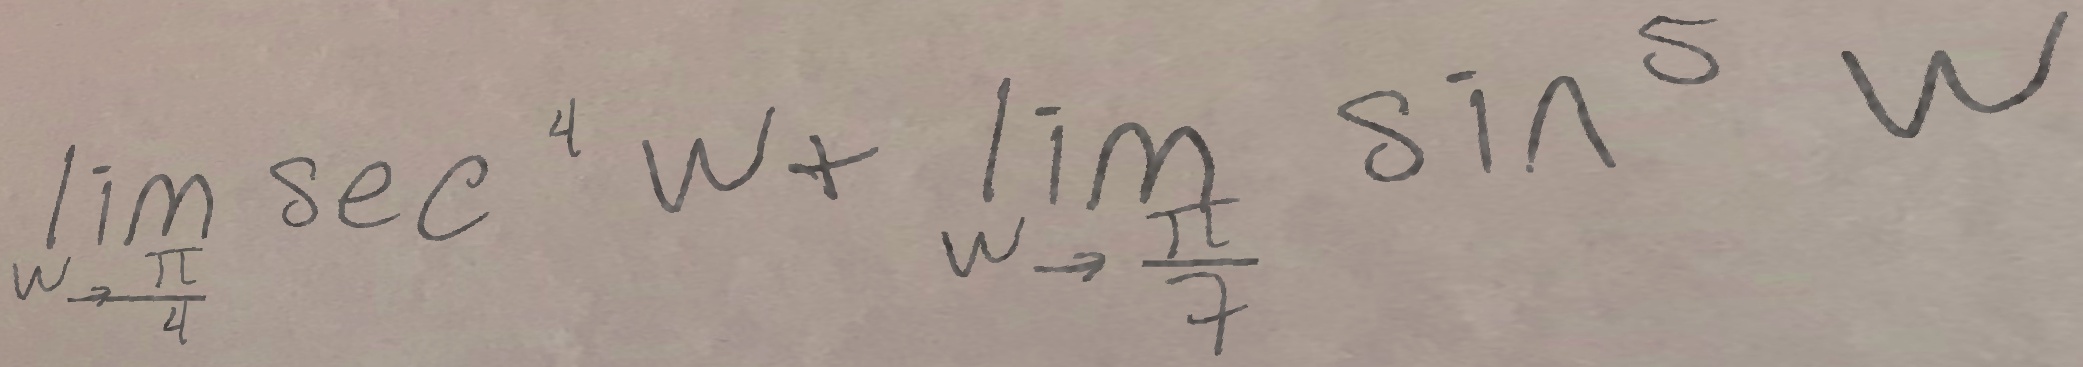 \lim_{w \to \frac{\pi}{4}} \sec^4 w + \lim_{w \to \frac{\pi}{7}} \sin^5 w